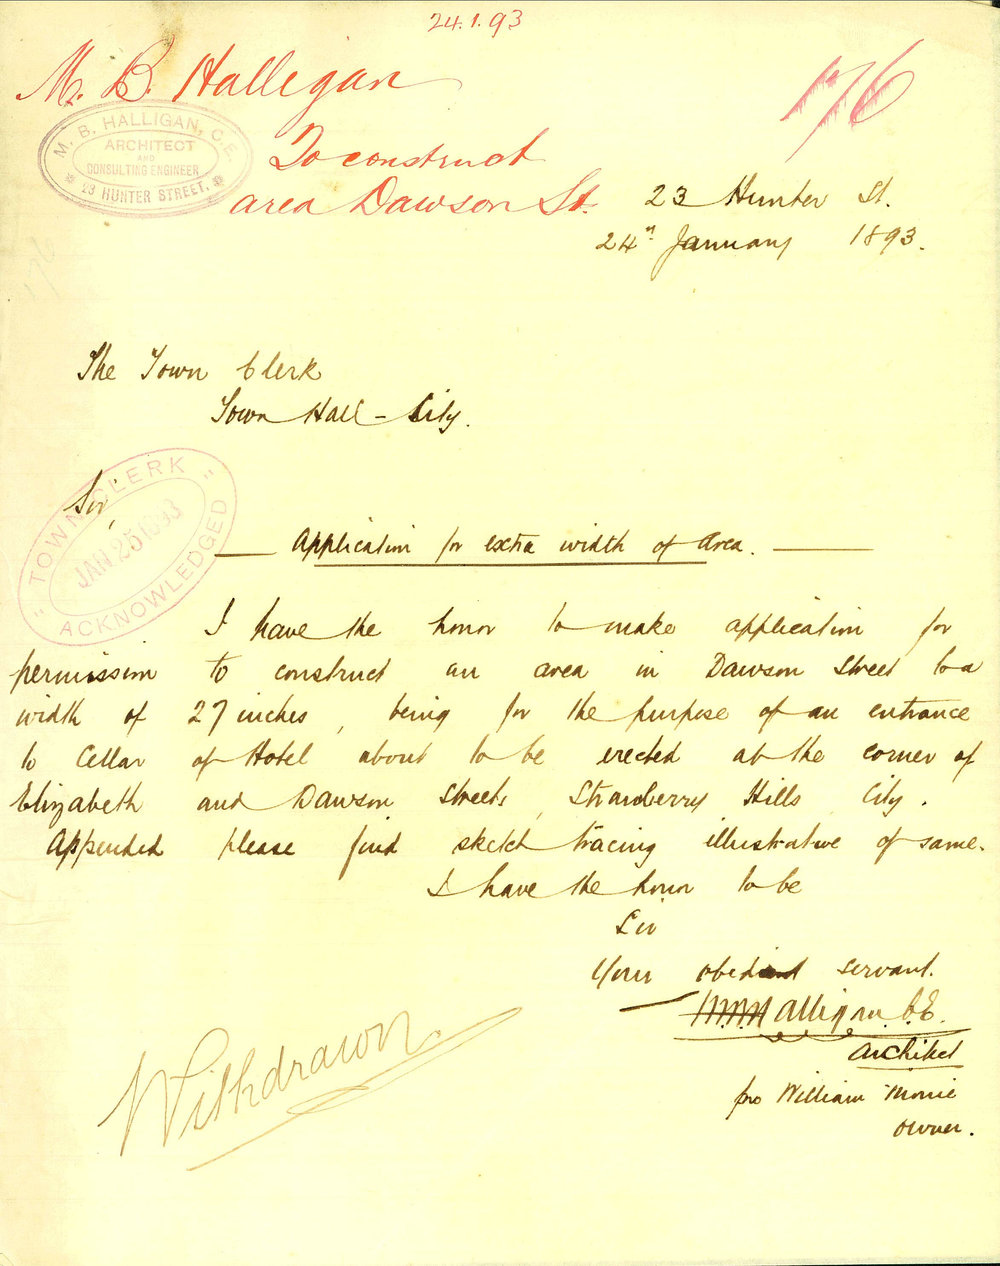 24.1.93
M. B. Halligan
176
M. B. HALLIGAN, C.E.
ARCHITECT
AND
CONSULTING ENGINEER
23 HUNTER STREET.
To construct
area Dawson St.
23 Hunter St.
24th January 1893.
The Town Clerk
Town Hall - City.
"TOWN CLERK"
JAN 25 1893
ACKNOWLEDGED
Sir,
Application for extra width of area.
I have the honor to make application for
permission to construct an area in Dawson Street to a
width of 27 inches, being for the purpose of an entrance
to Cellar of Hotel about to be erected at the corner of
Elizabeth and Dawson Streets, Strawberry Hills City.
Appended please find sketch tracing illustrative of same.
I have the honor to be
Sir
Your obedient servant.
M.B. Halligan C.E.
Architect
pro William Monie
owner.
Withdrawn